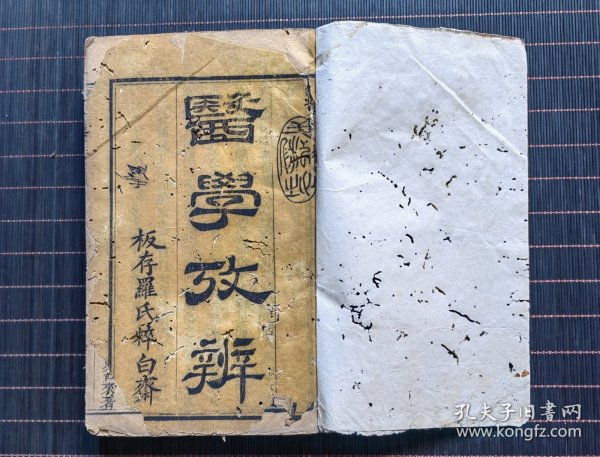 醫學攷辨
板存羅氏粹白齋
孔夫子旧書网
www.kongfz.com